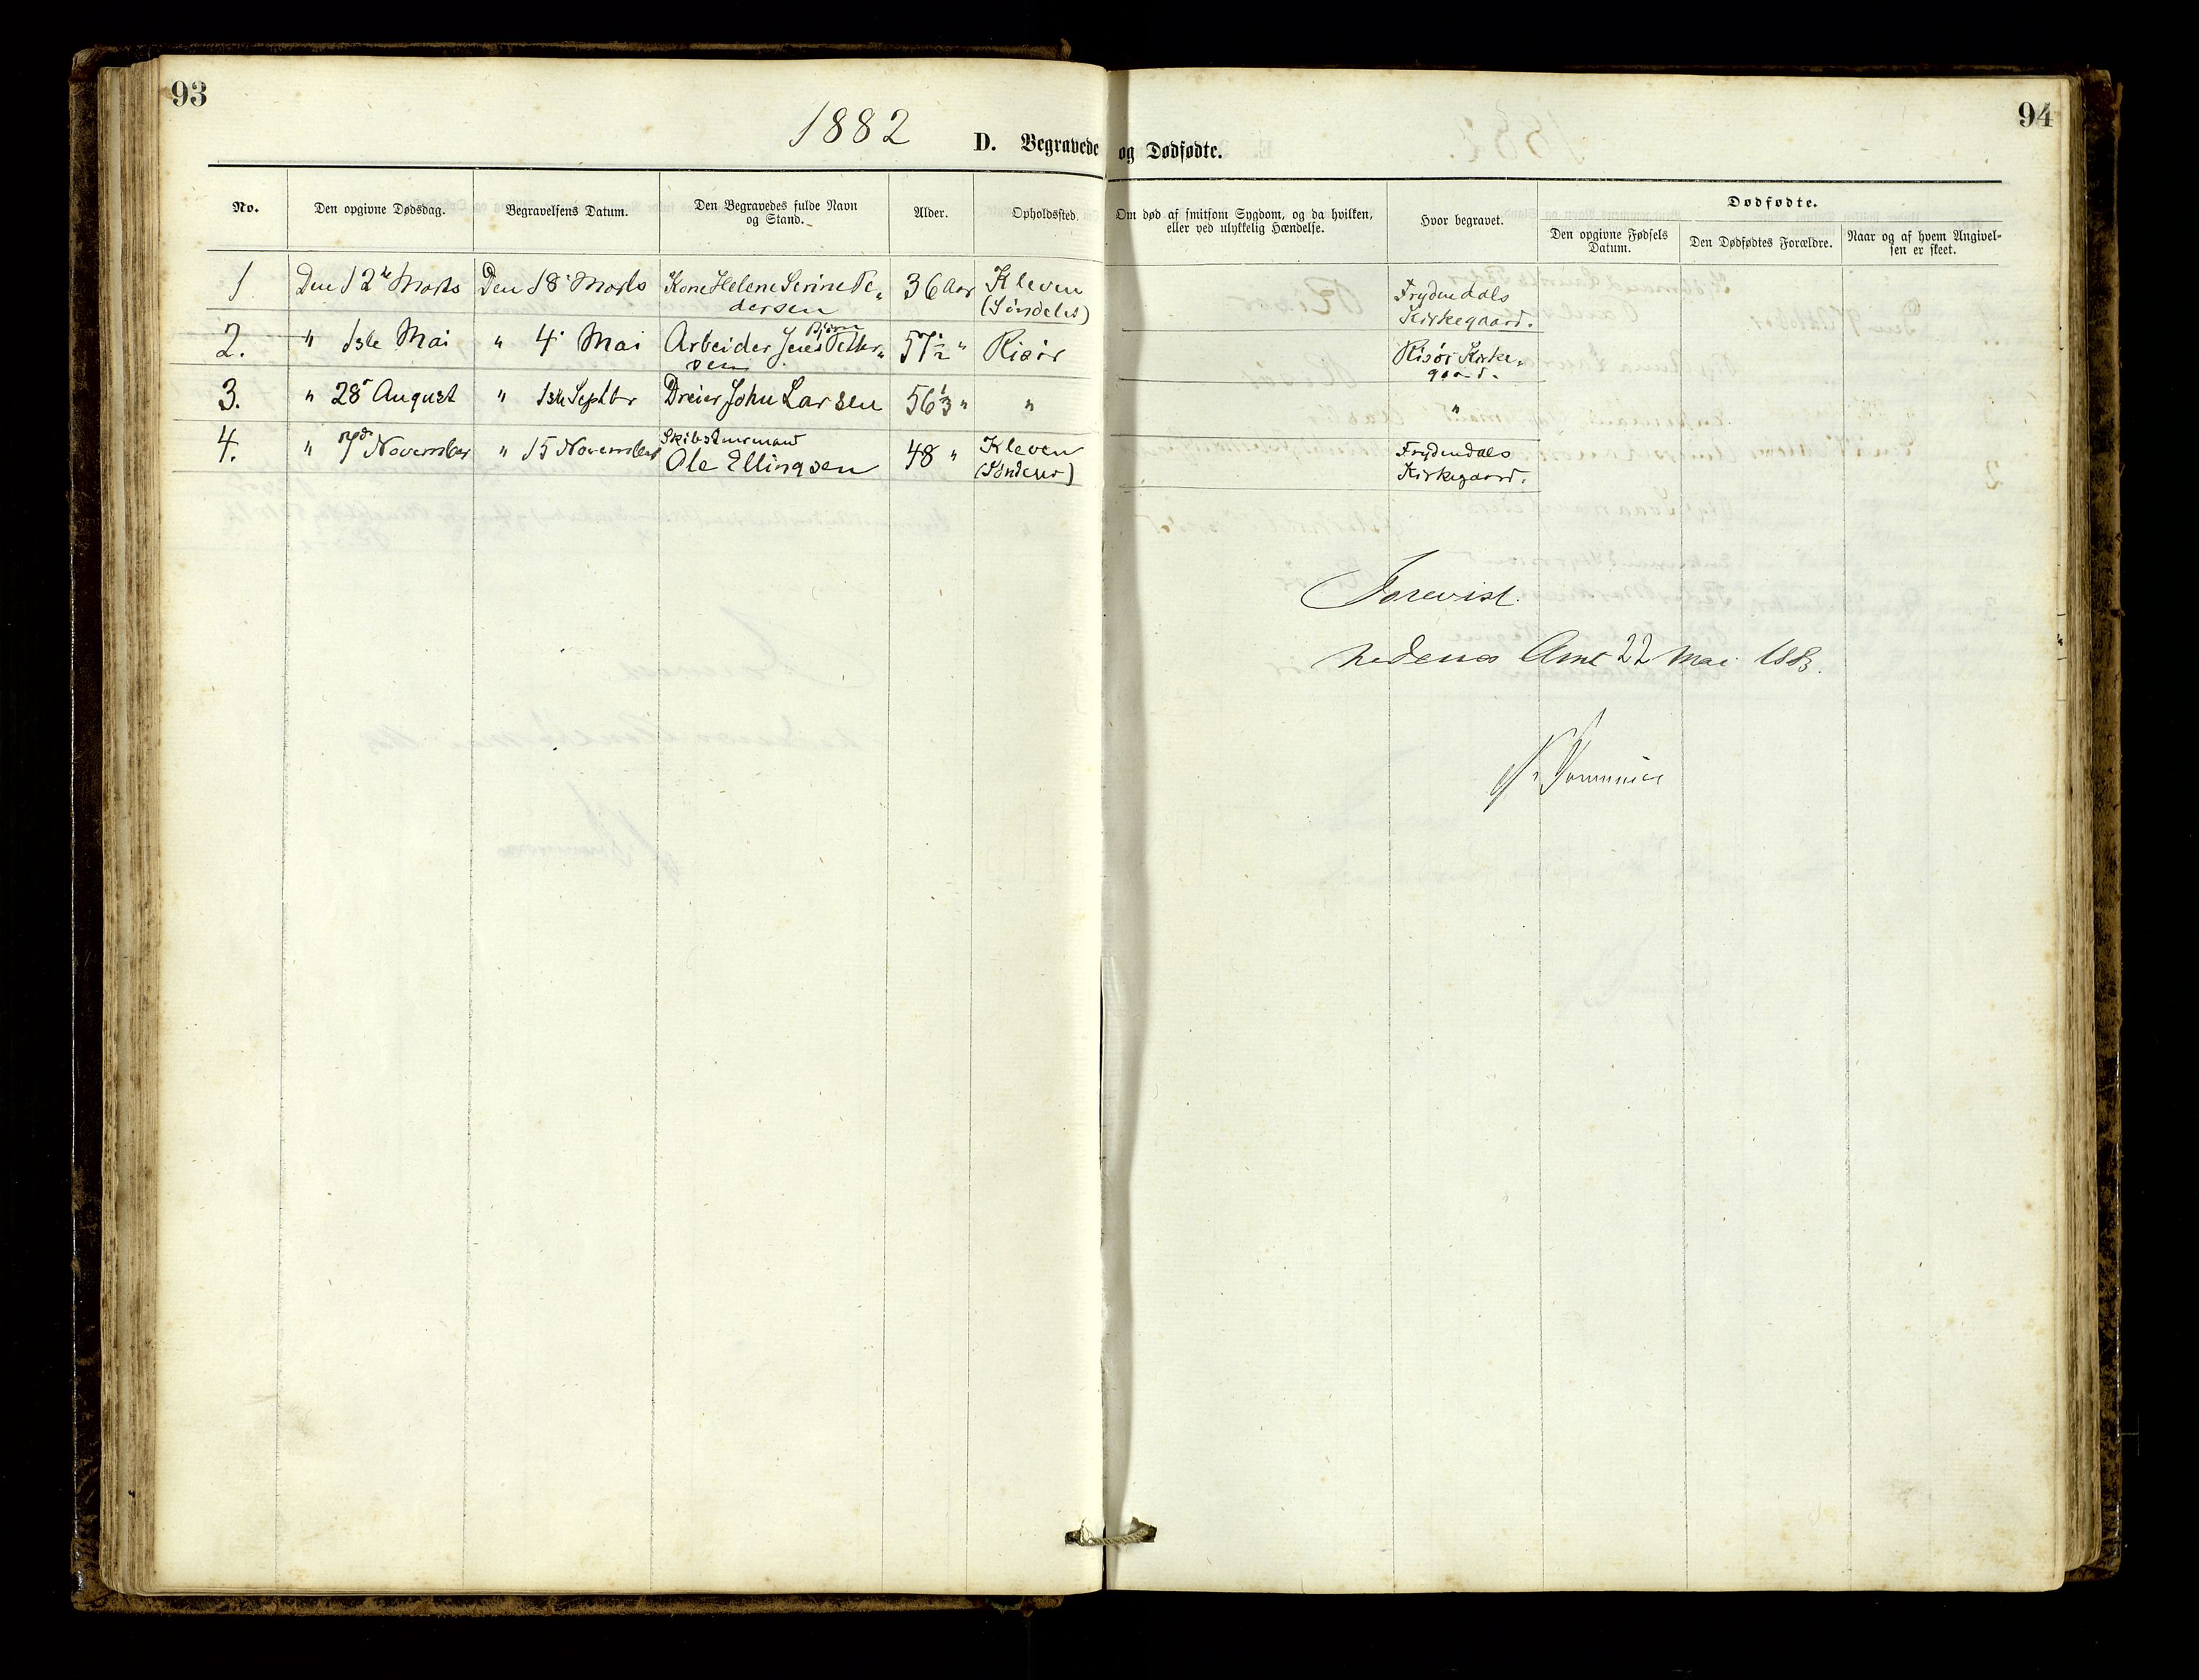 93
94
1882
D. Begravede og Dødfødte.
No.
Den opgivne Dødsdag.
Begravelsens Datum.
Den Begravedes fulde Navn
og Stand.
Alder.
Opholdssted
Om død af smitsom Sygdom, og da hvilken,
eller ved ulykkelig Hændelse.
Hvor begravet.
Dødfødte.
Den opgivne Fødsels
Datum.
Den Dødfødtes Forældre.
Naar og af hvem Angivel-
sen er skeet.
1 Den 12te Marts Den 18 Marts Kone Helene Serine Pe„ 36 Aar Kleven Frydendals
dersen (Søndeled) Kirkegaard.
2. " 1ste Mai " 4 Mai Arbeider Jens Bjørn Petter„ 57½ " Risør Risør Kirke„
sen gaard.
3. " 28 August " 1ste Septbr Dreier John Larsen 56⅓ " " "
4. " 7de November " 15 November Skibstømmand 48 " Kleven Frydendals
Ole Ellingsen (Søndeled) Kirkegaard.
Forevist.
Nedenes Amt 22 Mai 1883.